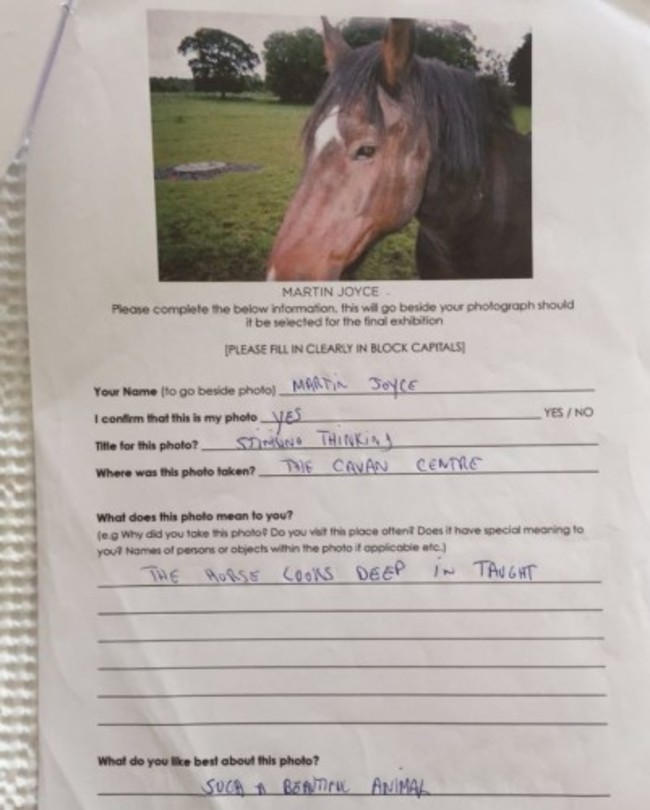 MARTIN JOYCE
Please complete the below information, this will go beside your photograph should
it be selected for the final exhibition
[PLEASE FILL IN CLEARLY IN BLOCK CAPITALS]
Your Name (to go beside photo) MARTIN JOYCE
I confirm that this is my photo YES YES / NO
Title for this photo? THINKING
Where was this photo taken? THE CAVAN CENTRE
What does this photo mean to you?
(e.g Why did you take this photo? Do you visit this place often? Does it have special meaning to
you? Names of persons or objects within the photo if applicable etc.)
THE HORSE LOOKS DEEP IN TAUGHT
What do you like best about this photo?
SUCH A BEATIFUL ANIMAL